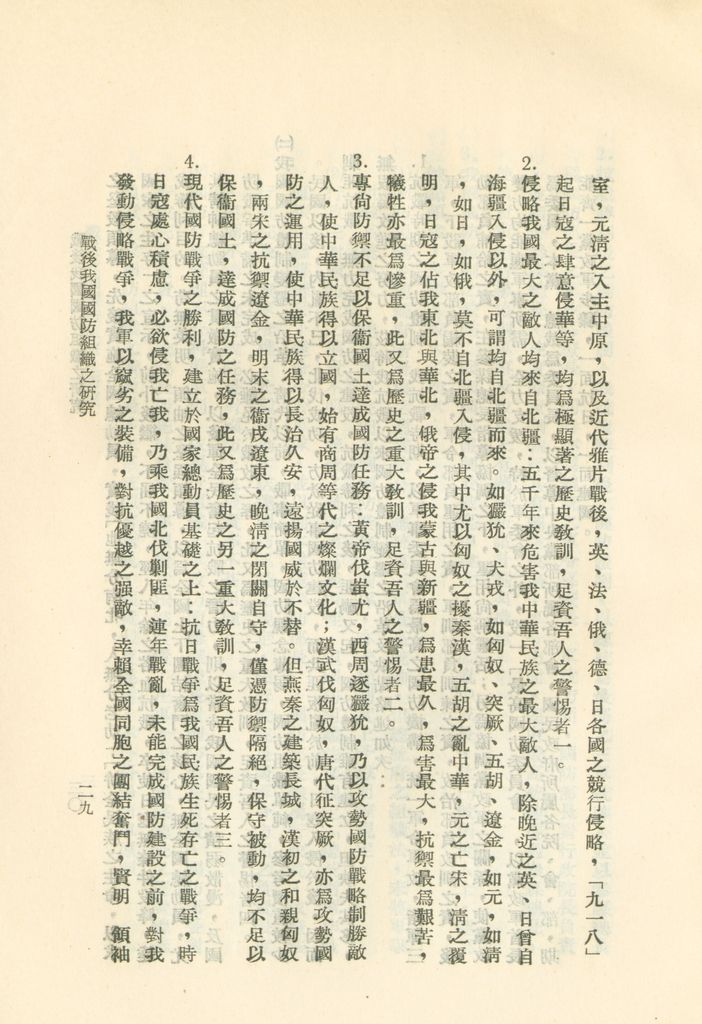 室，元清之入主中原，以及近代雅片戰後，英、法、俄、德、日各國之競行侵略，「九一八」
起日寇之肆意侵華等，均爲極顯著之歷史敎訓，足資吾人之警惕者一。
2.侵略我國最大之敵人均來自北疆：五千年來危害我中華民族之最大敵人，除晚近之英、日曾自
海疆入侵以外，可謂均自北疆而來。如玁狁、犬戎，如匈奴、突厥、五胡、遼金，如元，如清
，如日，如俄，莫不自北疆入侵，其中尤以匈奴之擾秦漢，五胡之亂中華，元之亡宋，清之覆
明，日寇之佔我東北與華北，俄帝之侵我蒙古與新疆，爲患最久，爲害最大，抗禦最爲艱苦，
犧牲亦最爲慘重，此又爲歷史之重大敎訓，足資吾人之警惕者二。
3.專尙防禦不足以保衞國土達成國防任務：黃帝伐蚩尤，西周逐玁狁，乃以攻勢國防戰略制勝敵
人，使中華民族得以立國，始有商周等代之燦爛文化；漢武伐匈奴，唐代征突厥，亦爲攻勢國
防之運用，使中華民族得以長治久安，遠揚國威於不替。但燕秦之建築長城，漢初之和親匈奴
，兩宋之抗禦遼金，明末之衞戍遼東，晚清之閉關自守，僅憑防禦隔絕，保守被動，均不足以
保衞國土，達成國防之任務，此又爲歷史之另一重大敎訓，足資吾人之警惕者三。
4.現代國防戰爭之勝利，建立於國家總動員基礎之上：抗日戰爭爲我國民族生死存亡之戰爭，時
日寇處心積慮，必欲侵我亡我，乃乘我國北伐剿匪，連年戰亂，未能完成國防建設之前，對我
發動侵略戰爭，我軍以窳劣之裝備，對抗優越之强敵，幸賴全國同胞之團結奮鬥，賢明　領袖
戰後我國國防組織之研究
二九